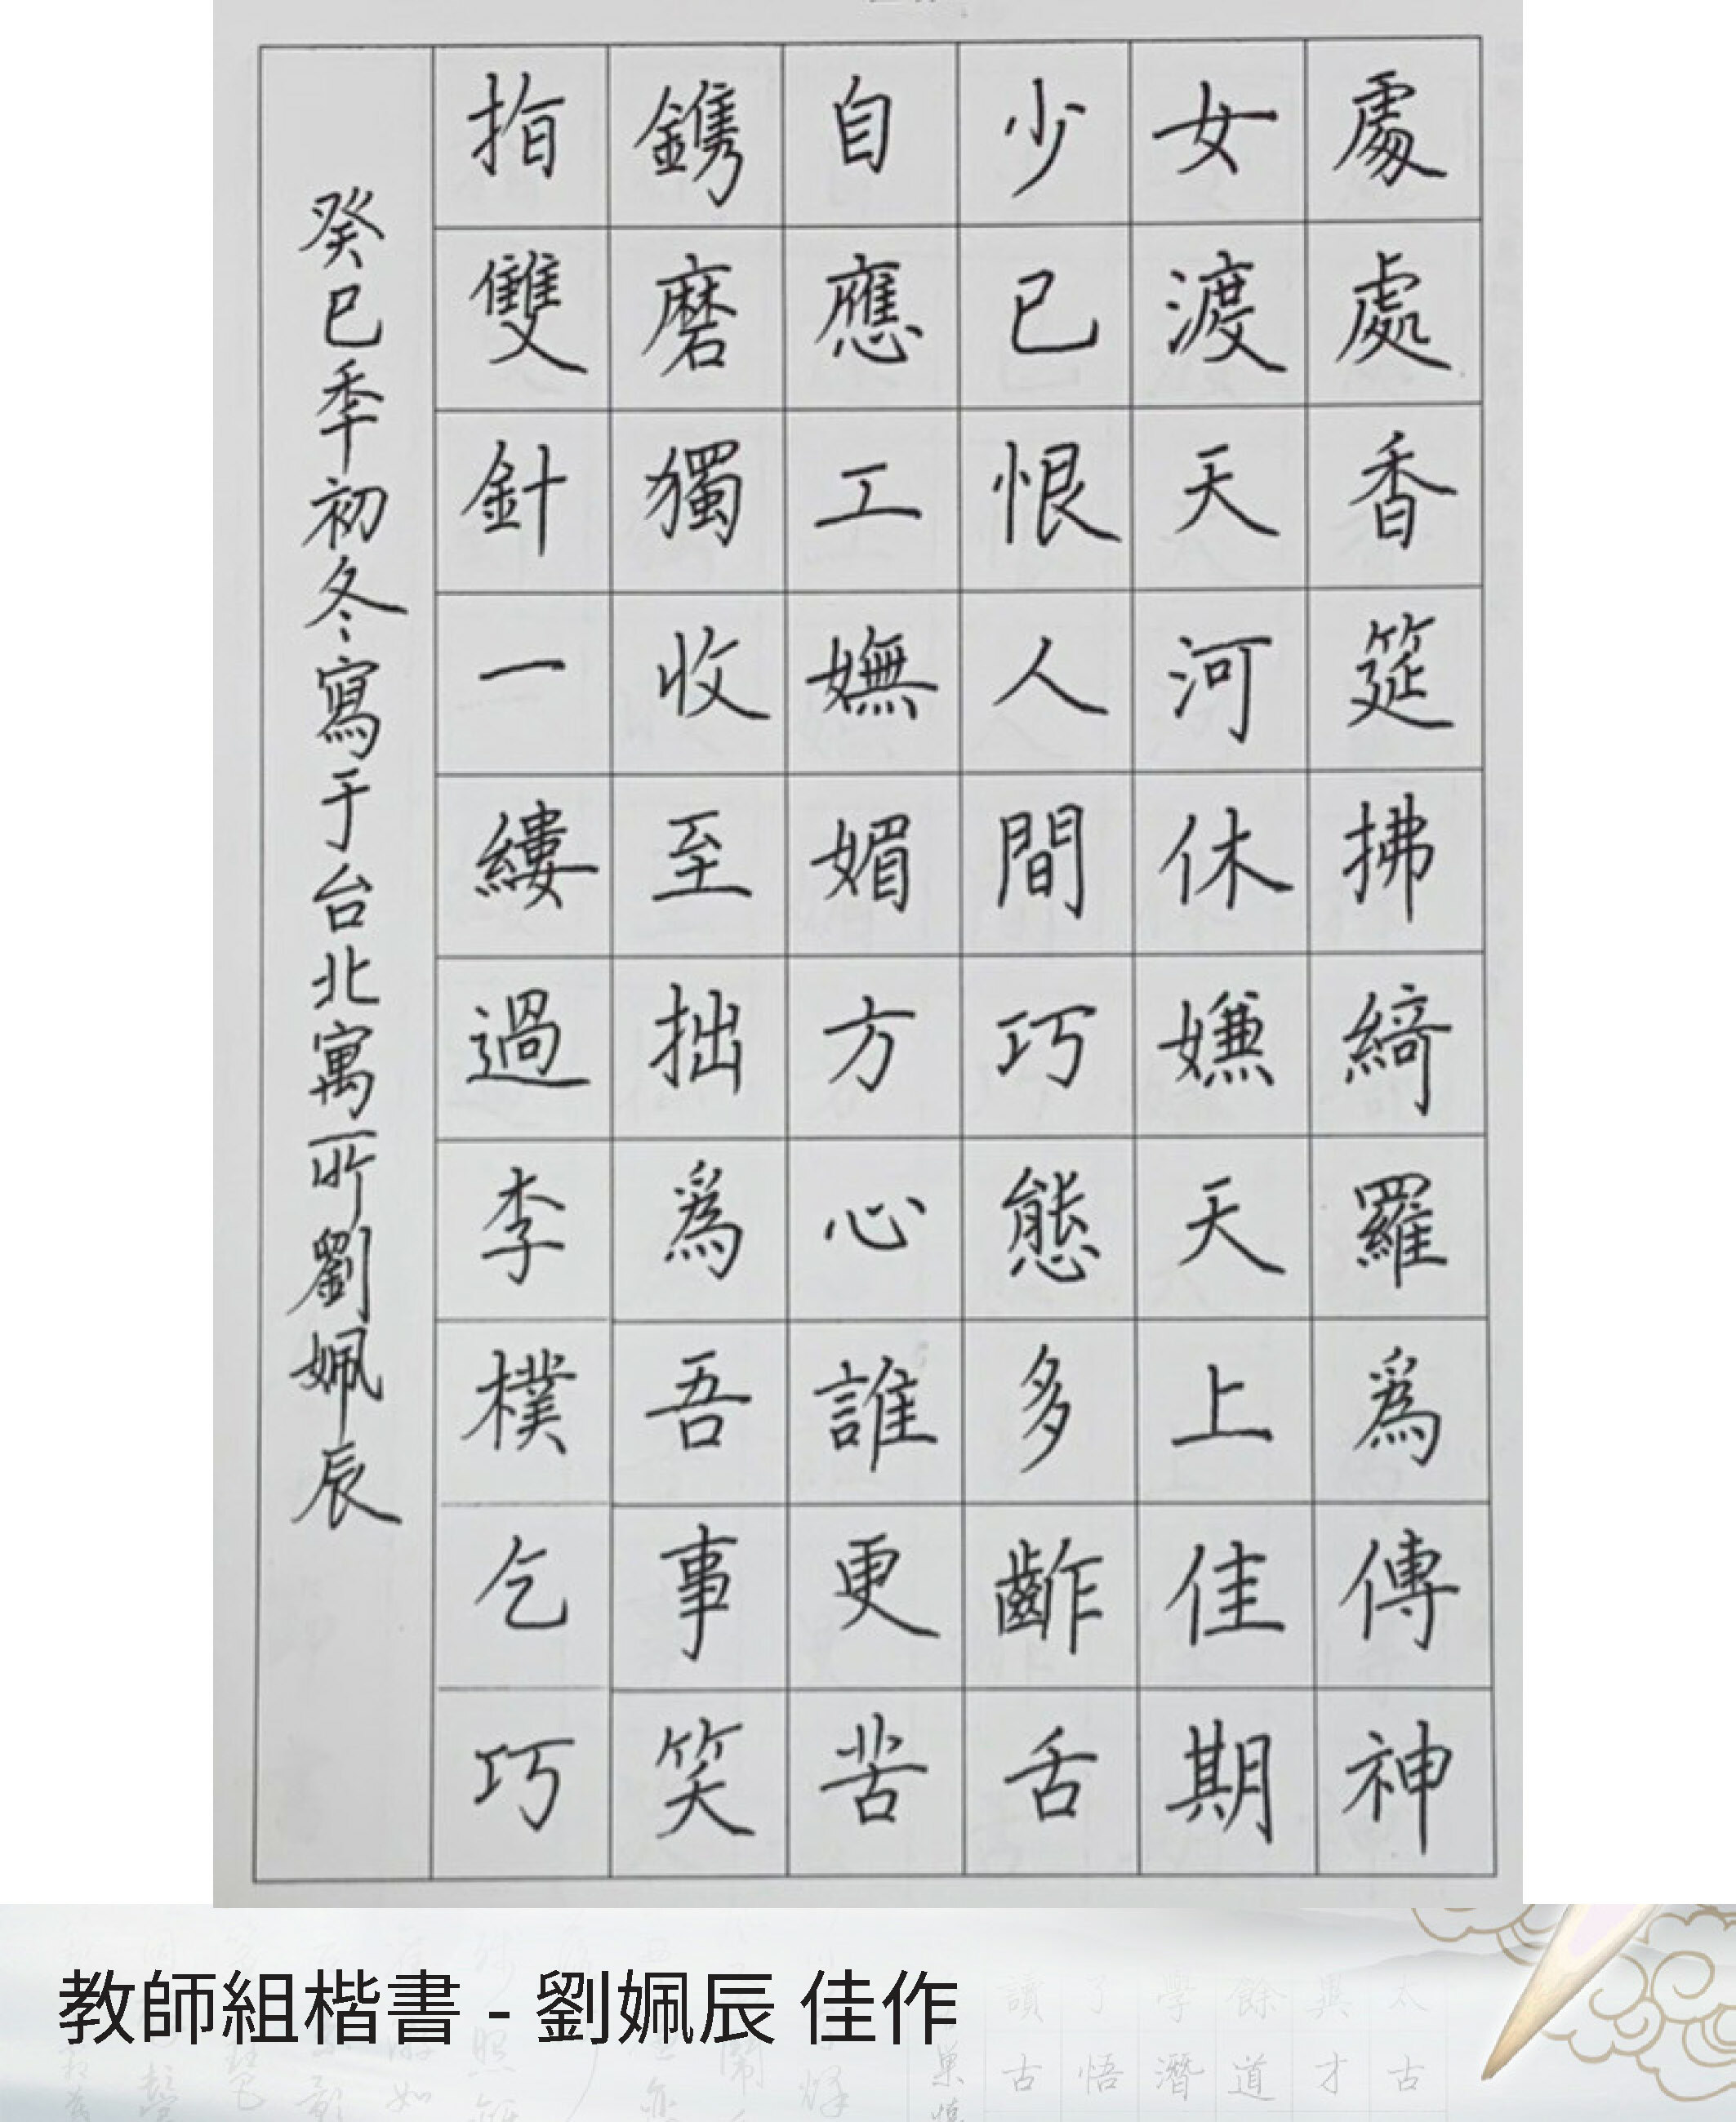 處處香筵拂綺羅為傳神
女渡天河休嫌天上佳期
少已恨人間巧態多齰舌
自應工嫵媚方心誰更苦
鐫磨獨收至拙為吾事笑
指雙針一縷過李樸乞巧
癸巳季初冬寫于台北寓所劉姵辰
教師組楷書 - 劉姵辰 佳作